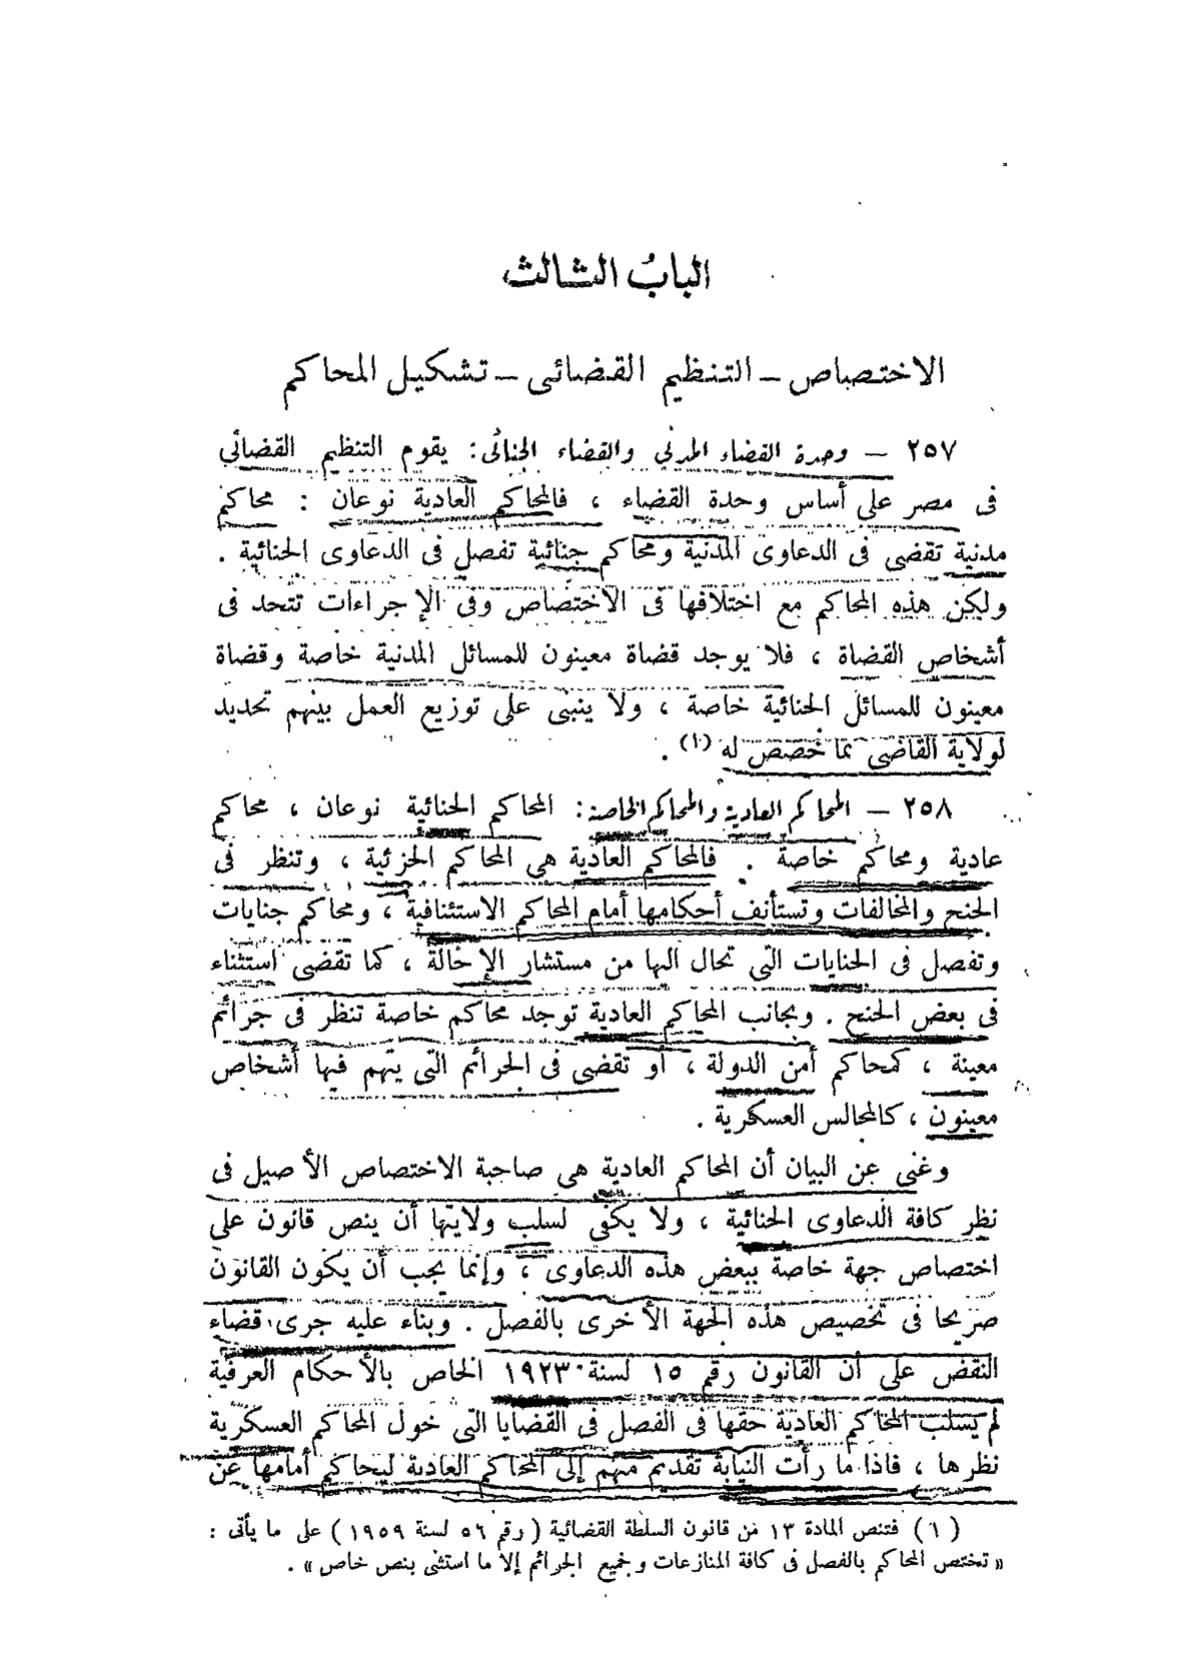 الباب الثالث
الاختصاص – التنظيم القضائى – تشكيل المحاكم
٢٥٧ – وحدة القضاء المدنى والقضاء الجنائى : يقوم التنظيم القضائى
فى مصر على أساس وحدة القضاء ، فالمحاكم العادية نوعان : محاكم
مدنية تقضى فى الدعاوى المدنية ومحاكم جنائية تفصل فى الدعاوى الجنائية .
ولكن هذه المحاكم مع اختلافها فى الاختصاص وفى الإجراءات تتحد فى
أشخاص القضاة ، فلا يوجد قضاة معينون للمسائل المدنية خاصة وقضاة
معينون للمسائل الجنائية خاصة ، ولا ينبنى على توزيع العمل بينهم تحديد
لولاية القاضى بما خصص له (١) .
٢٥٨ – المحاكم العادية والمحاكم الخاصة : المحاكم الجنائية نوعان ، محاكم
عادية ومحاكم خاصة . فالمحاكم العادية هى المحاكم الجزئية ، وتنظر فى
الجنح والمخالفات وتستأنف أحكامها أمام المحاكم الاستئنافية ، ومحاكم جنايات
وتفصل فى الجنايات التى تحال اليها من مستشار الإحالة ، كما تقضى استثناء
فى بعض الجنح . وبجانب المحاكم العادية توجد محاكم خاصة تنظر فى جرائم
معينة ، كمحاكم أمن الدولة ، أو تقضى فى الجرائم التى يتهم فيها أشخاص
معينون ، كالمجالس العسكرية .
وغنى عن البيان أن المحاكم العادية هى صاحبة الاختصاص الأصيل فى
نظر كافة الدعاوى الجنائية ، ولا يكفى لسلب ولايتها أن ينص قانون على
اختصاص جهة خاصة ببعض هذه الدعاوى ، وإنما يجب أن يكون القانون
صريحا فى تخصيص هذه الجهة الأخرى بالفصل . وبناء عليه جرى قضاء
النقض على أن القانون رقم ١٥ لسنة ١٩٢٣ الخاص بالأحكام العرفية
لم يسلب المحاكم العادية حقها فى الفصل فى القضايا التى خول المحاكم العسكرية
نظرها ، فاذا ما رأت النيابة تقديم متهم إلى المحاكم العادية ليحاكم أمامها عن
(١) فتنص المادة ١٣ من قانون السلطة القضائية ( رقم ٥٦ لسنة ١٩٥٩ ) على ما يأتى :
« تختص المحاكم بالفصل فى كافة المنازعات وجميع الجرائم إلا ما استثنى بنص خاص » .